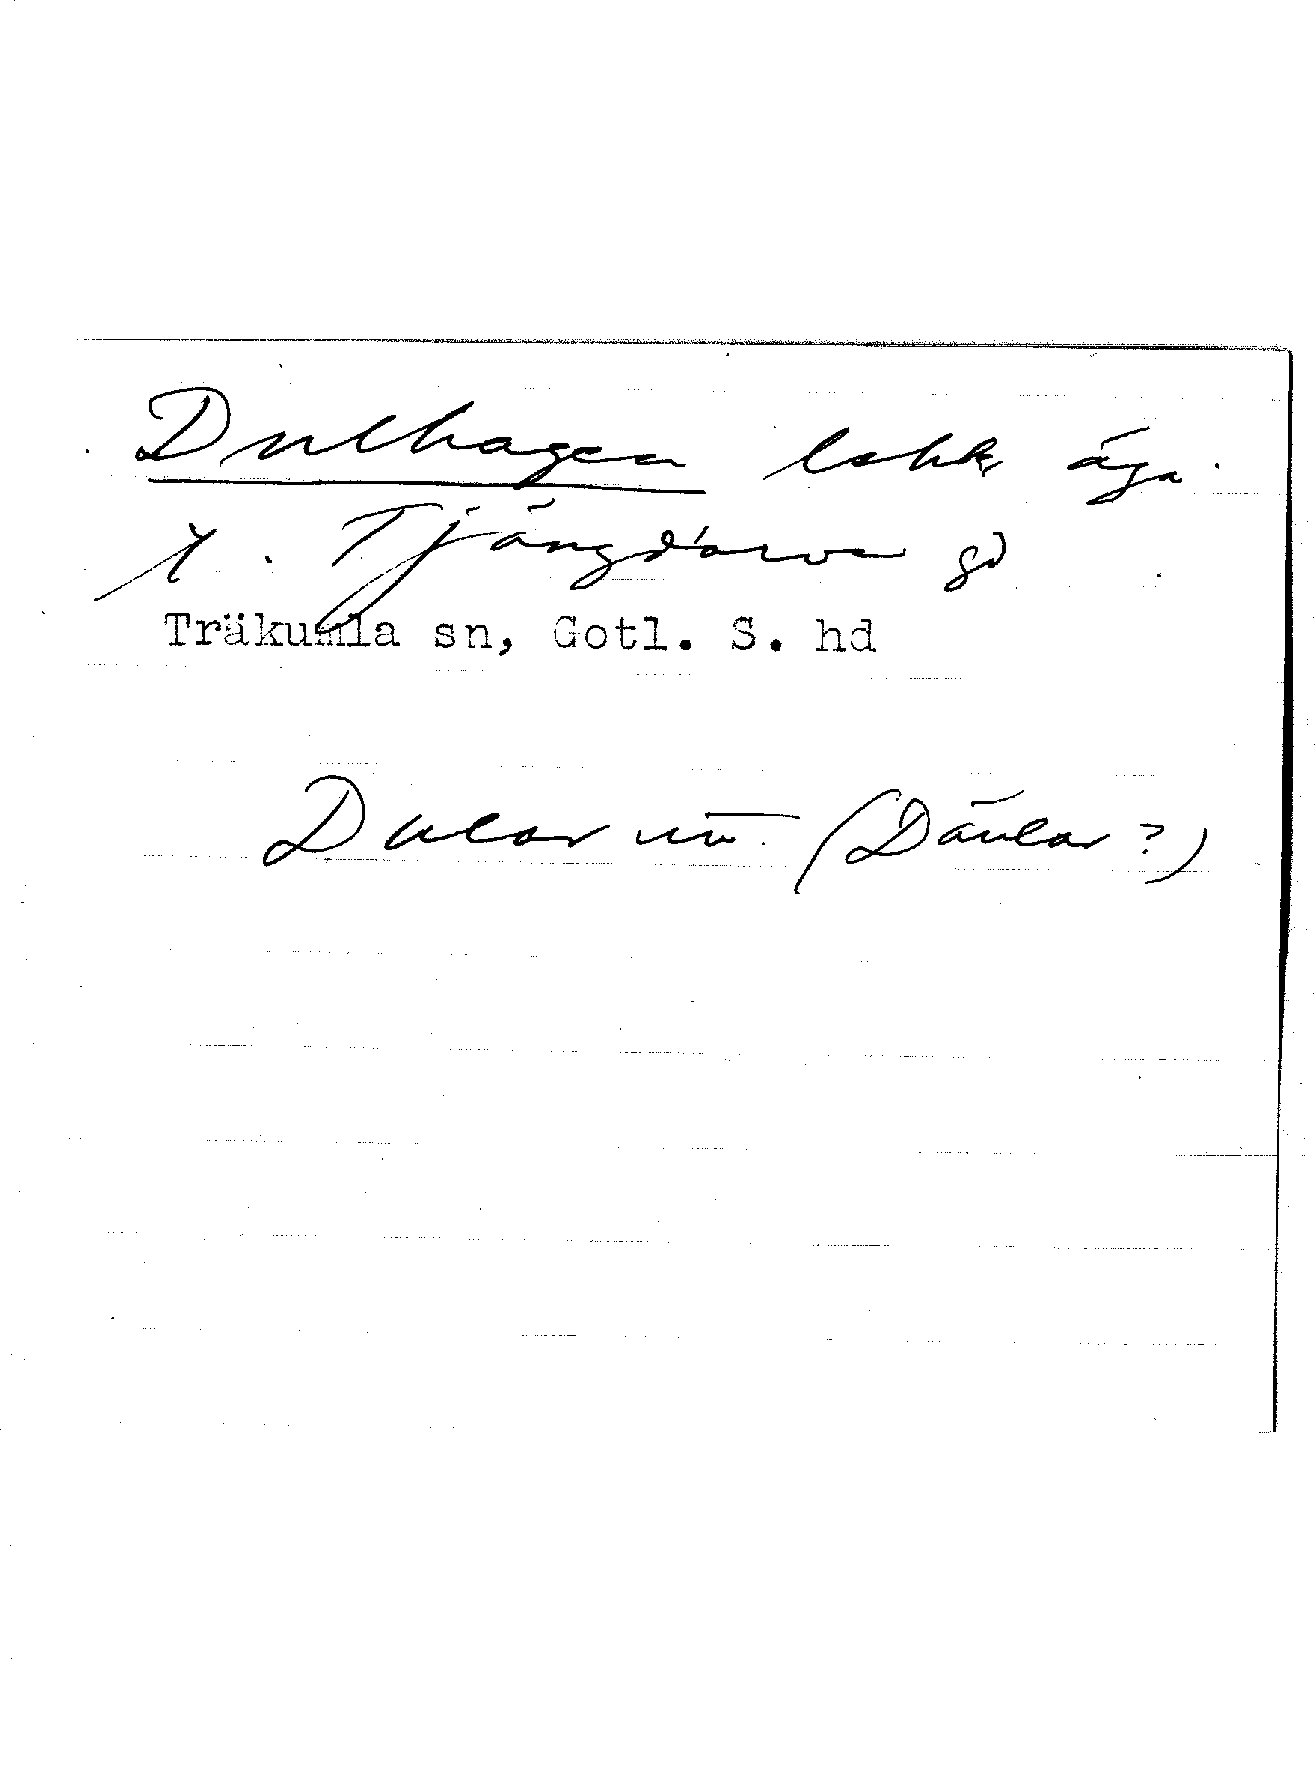 Dulhagen löhk äga
t. Tjängdarve gd
Träkumla sn, Gotl. S. hd
Dular (Däular?)